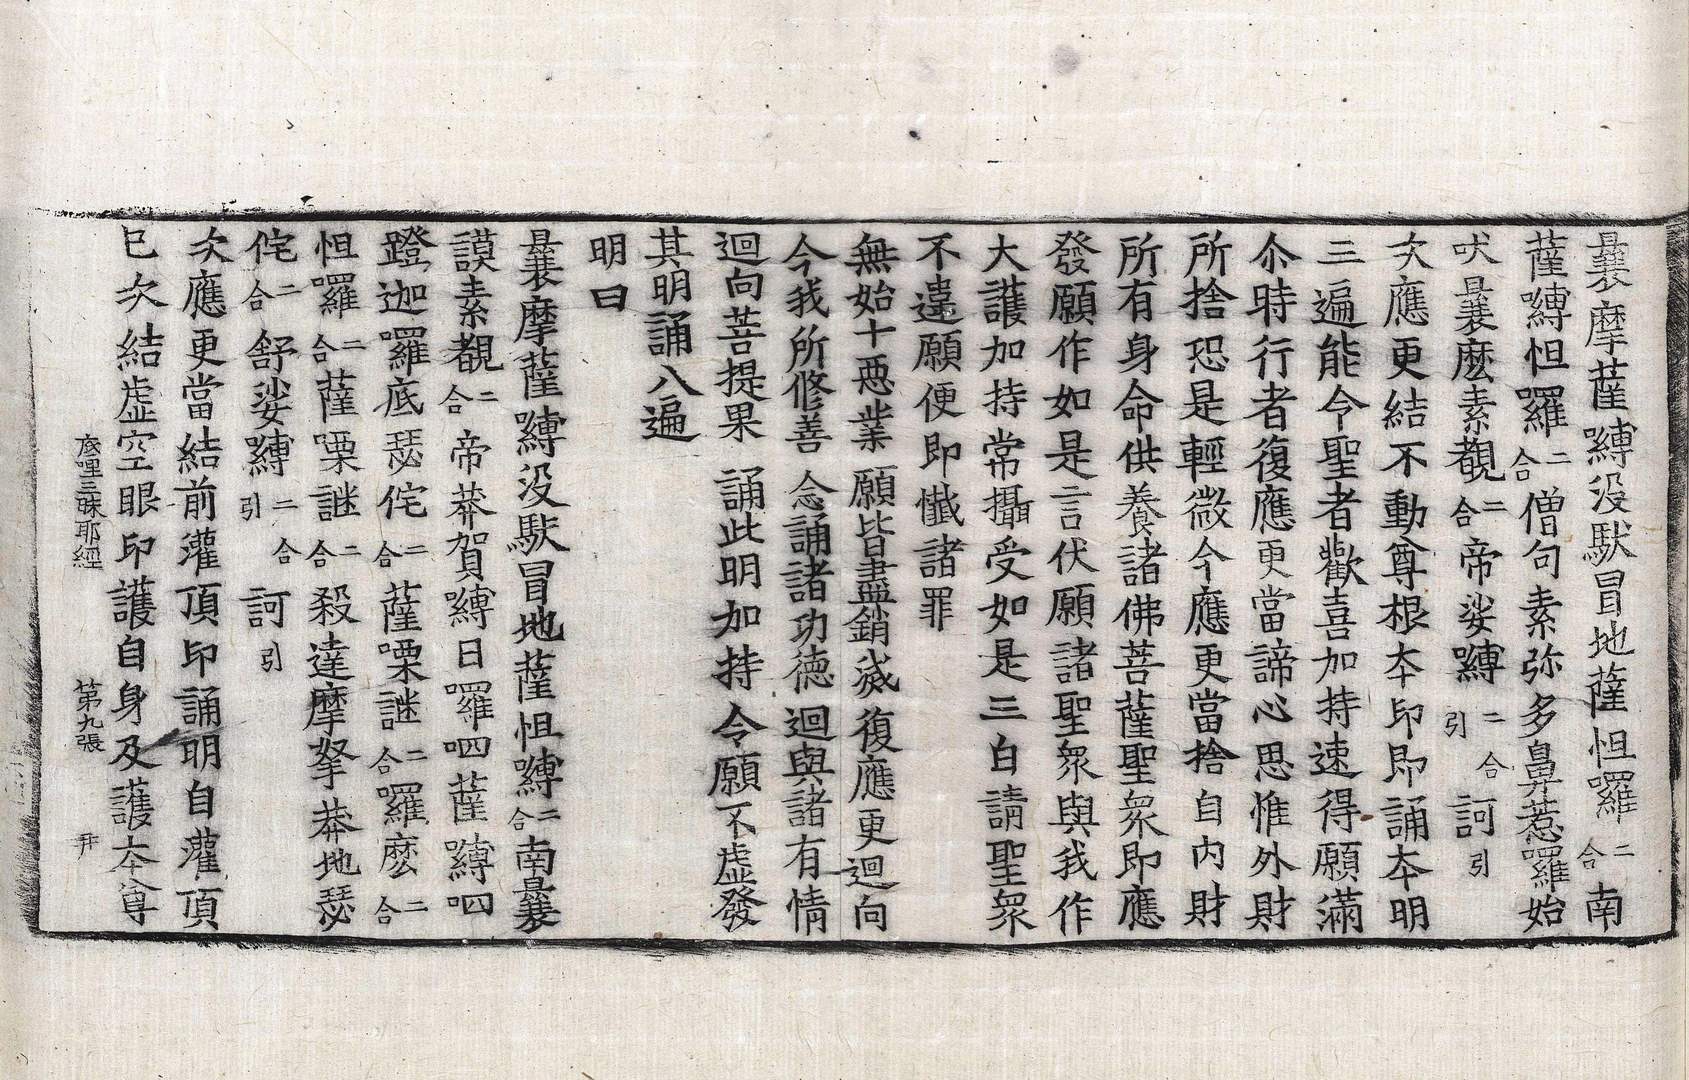 曩摩薩嚩没馱冒地薩怛囉二合南
薩嚩怛囉二合僧句素弥多鼻惹囉始
吠曩麽素覩二合帝娑嚩二合引訶引
次應更結不動尊根本印即誦本明
三遍能令聖者歡喜加持速得願滿
尒時行者復應更當諦心思惟外財
所捨恐是輕微今應更當捨自内財
所有身命供養諸佛菩薩聖衆即應
發願作如是言伏願諸聖衆與我作
大護加持常攝受如是三白請聖衆
不違願便即懺諸罪
無始十惡業 願皆盡銷滅復應更迴向
今我所修善 念誦諸功德 迴與諸有情
迴向菩提果 誦此明加持 令願不虛發
其明誦八遍
明曰
曩摩薩嚩没馱冒地薩怛嚩二合南曩
謨素覩二合帝莽賀嚩日囉呬薩嚩呬
蹬迦囉底瑟侘二合薩㗚謎二合囉麽二合
怛囉二合薩㗚謎二合殺達摩拏莽地瑟
侘二合舒娑嚩二合引訶引
次應更當結前灌頂印誦明自灌頂
已次結虛空眼印護自身及護本尊
底哩三昧耶經 第九張